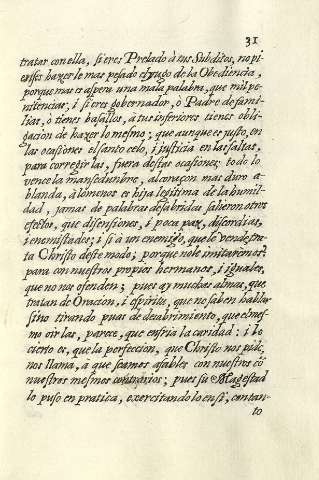 31
tratar con ella, si eres Prelado à tus Subditos, no pi-
enses hazerle mas pesado el yugo de la Obediencia,
porque mas es aspera una mala palabra, que mil pe-
nitencias; i si eres gobernador, ò Padre de fami-
lias, ò tienes basallos, à tus inferiores tienes obli-
gacion de hazer lo mesmo; que aunque es justo, en
las ocasiones el santo celo, i justicia en las faltas,
para corregirlas, fuera destas ocasiones todo lo
vence la mansedumbre, al coraçon mas duro a-
blanda, à lo menos es hija legitima de la humil-
dad, jamas de palabras desabridas salieron otros
efectos, que disensiones, i poca paz, discordias,
i enemistades; i si à un enemigo, que le vendio tra
ta Christo deste modo; porque no le imitaremos
para con nuestros propios hermanos, i iguales,
que no nos ofenden; pues ay muchas almas, que
tratan de Oracion, i espiritu, que no saben hablar
sino tirando puas de desabrimiento, que el mes-
mo oirlas, parece, que enfria la caridad; i lo
cierto es, que la perfeccion, que Christo nos pide,
nos llama, a que seamos afables con nuestros cõ
nuestros mesmos contrarios; pues su Magestad
lo puso en pratica, exercitandolo en si, contan-
to